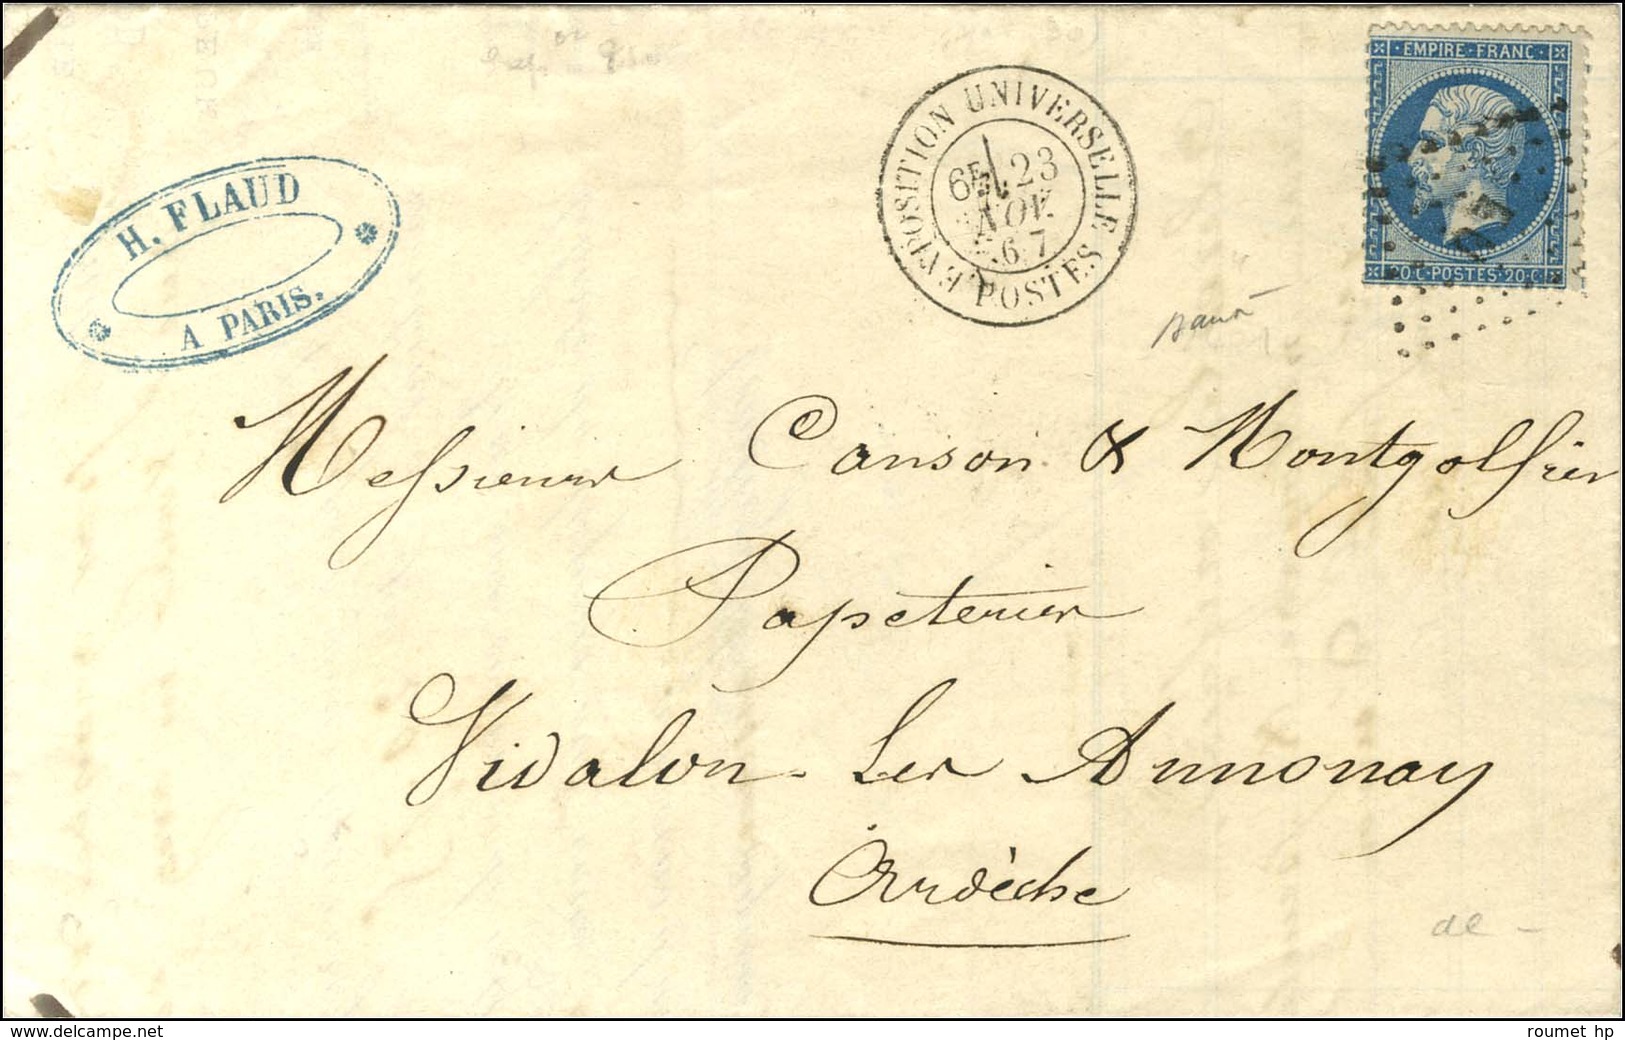 EMPIRE · FRANC ·
20 C · POSTES · 20 · C
EXPOSITION UNIVERSELLE
6E 23
NOV.
67
POSTES
H. FLAUD
A PARIS.
Messieurs Canson & Montgolfier
Papeterier
Vidalon-Les Annonay
Ardèche
de -
www.delcampe.net
roumet hp